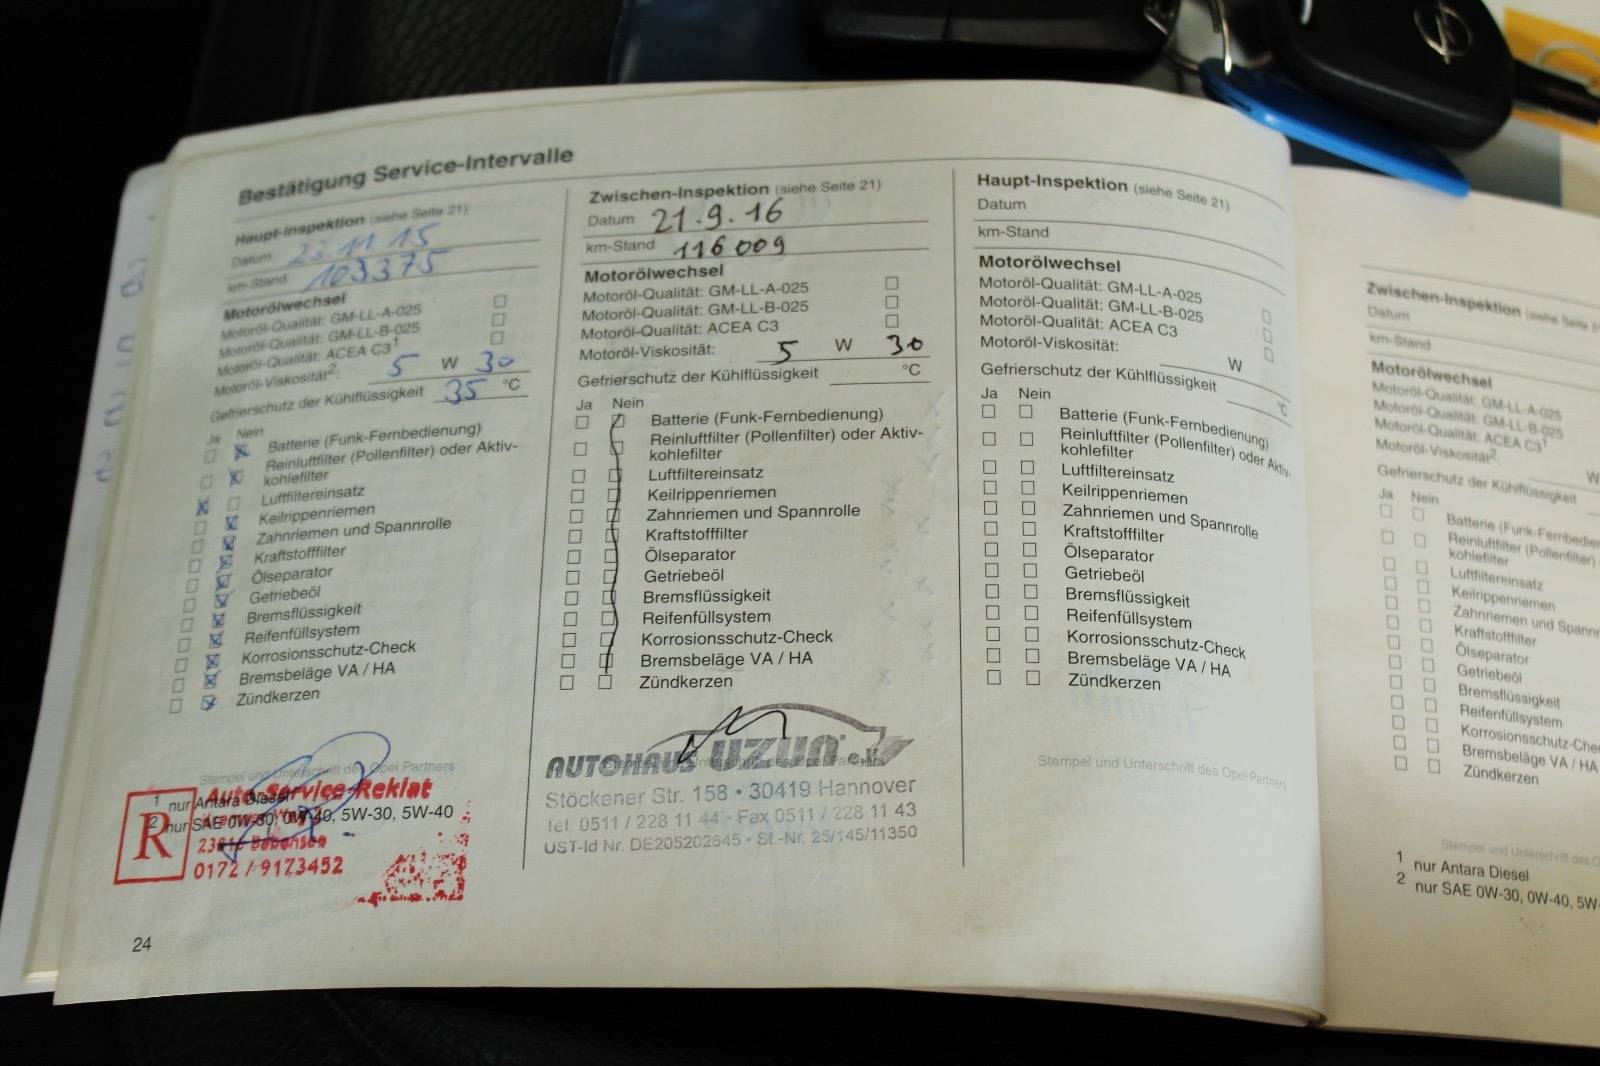 Bestätigung Service-Intervalle
Haupt-Inspektion (siehe Seite 21)
Datum 23.11.15
km-Stand 103375
Motorölwechsel
Motoröl-Qualität: GM-LL-A-025
Motoröl-Qualität: GM-LL-B-025
Motoröl-Qualität: ACEA C3¹
Motoröl-Viskosität²: 5 W 30
Gefrierschutz der Kühlflüssigkeit 35 °C
Ja Nein
Batterie (Funk-Fernbedienung)
Reinluftfilter (Pollenfilter) oder Aktiv-
kohlefilter
Luftfiltereinsatz
Keilrippenriemen
Zahnriemen und Spannrolle
Kraftstofffilter
Ölseparator
Getriebeöl
Bremsflüssigkeit
Reifenfüllsystem
Korrosionsschutz-Check
Bremsbeläge VA / HA
Zündkerzen
Stempel und Unterschrift des Opel Partners
1 nur Antara Diesel
2 nur SAE 0W-30, 0W-40, 5W-30, 5W-40
R
Auto-Service-Reklat
0172 / 9173452
24
Zwischen-Inspektion (siehe Seite 21)
Datum 21.9.16
km-Stand 116009
Motorölwechsel
Motoröl-Qualität: GM-LL-A-025
Motoröl-Qualität: GM-LL-B-025
Motoröl-Qualität: ACEA C3
Motoröl-Viskosität: 5 W 30
Gefrierschutz der Kühlflüssigkeit °C
Ja Nein
Batterie (Funk-Fernbedienung)
Reinluftfilter (Pollenfilter) oder Aktiv-
kohlefilter
Luftfiltereinsatz
Keilrippenriemen
Zahnriemen und Spannrolle
Kraftstofffilter
Ölseparator
Getriebeöl
Bremsflüssigkeit
Reifenfüllsystem
Korrosionsschutz-Check
Bremsbeläge VA / HA
Zündkerzen
AUTOHAUS UZUN e.K.
Stempel und Unterschrift des Opel Partners
Stöckener Str. 158 • 30419 Hannover
Tel. 0511 / 228 11 44 • Fax 0511 / 228 11 43
UST-Id Nr. DE205202645 • St.-Nr. 25/145/11350
Haupt-Inspektion (siehe Seite 21)
Datum
km-Stand
Motorölwechsel
Motoröl-Qualität: GM-LL-A-025
Motoröl-Qualität: GM-LL-B-025
Motoröl-Qualität: ACEA C3
Motoröl-Viskosität: W
Gefrierschutz der Kühlflüssigkeit °C
Ja Nein
Batterie (Funk-Fernbedienung)
Reinluftfilter (Pollenfilter) oder Aktiv-
kohlefilter
Luftfiltereinsatz
Keilrippenriemen
Zahnriemen und Spannrolle
Kraftstofffilter
Ölseparator
Getriebeöl
Bremsflüssigkeit
Reifenfüllsystem
Korrosionsschutz-Check
Bremsbeläge VA / HA
Zündkerzen
Stempel und Unterschrift des Opel Partners
Zwischen-Inspektion (siehe Seite
Datum
km-Stand
Motorölwechsel
Motoröl-Qualität: GM-LL-A-025
Motoröl-Qualität: GM-LL-B-025
Motoröl-Qualität: ACEA C3¹
Motoröl-Viskosität²: W
Gefrierschutz der Kühlflüssigkeit
Ja Nein
Batterie (Funk-Fernbedien
Reinluftfilter (Pollenfilter)
kohlefilter
Luftfiltereinsatz
Keilrippenriemen
Zahnriemen und Spann
Kraftstofffilter
Ölseparator
Getriebeöl
Bremsflüssigkeit
Reifenfüllsystem
Korrosionsschutz-Che
Bremsbeläge VA / HA
Zündkerzen
Stempel und Unterschrift des O
1 nur Antara Diesel
2 nur SAE 0W-30, 0W-40, 5W-